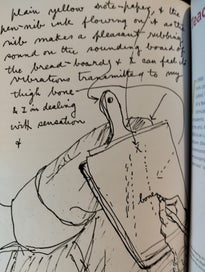 plain yellow note-paper, & the
pen-nib ink flowing on it as the
nib makes a pleasant rubbing
sound on the sounding board of
the bread-board & I can feel the
vibrations transmitted to my
thigh bone –
& I'm dealing
with sensation
&
read